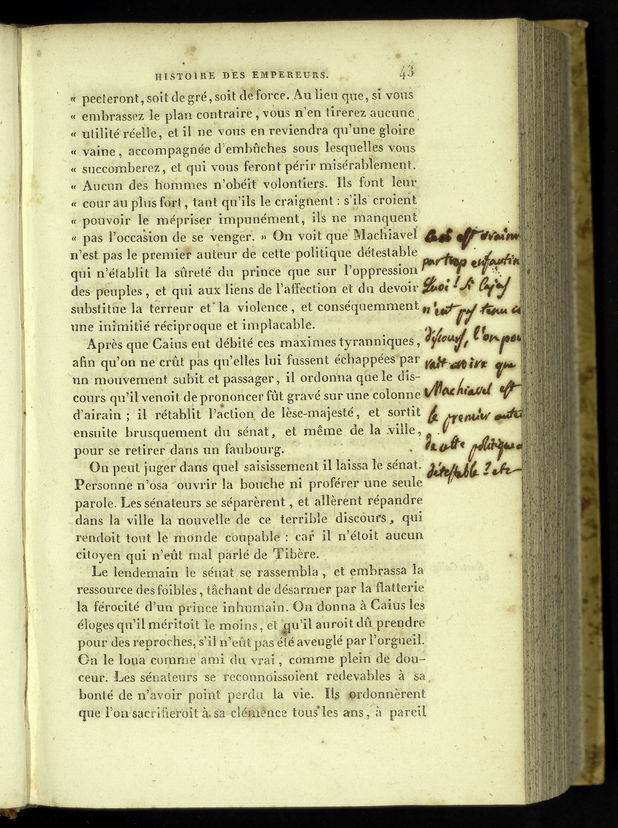 HISTOIRE DES EMPEREURS. 43
« pecteront, soit de gré, soit de force. Au lieu que, si vous
« embrassez le plan contraire, vous n'en tirerez aucune
« utilité réelle, et il ne vous en reviendra qu'une gloire
« vaine, accompagnée d'embûches sous lesquelles vous
« succomberez, et qui vous feront périr misérablement.
« Aucun des hommes n'obéit volontiers. Ils font leur
« cour au plus fort, tant qu'ils le craignent : s'ils croient
« pouvoir le mépriser impunément, ils ne manquent
« pas l'occasion de se venger. » On voit que Machiavel
n'est pas le premier auteur de cette politique détestable
qui n'établit la sûreté du prince que sur l'oppression
des peuples, et qui aux liens de l'affection et du devoir
substitue la terreur et la violence, et conséquemment
une inimitié réciproque et implacable.
Après que Caius eut débité ces maximes tyranniques,
afin qu'on ne crût pas qu'elles lui fussent échappées par
un mouvement subit et passager, il ordonna que le dis-
cours qu'il venoit de prononcer fût gravé sur une colonne
d'airain ; il rétablit l'action de lèse-majesté, et sortit
ensuite brusquement du sénat, et même de la ville,
pour se retirer dans un faubourg.
On peut juger dans quel saisissement il laissa le sénat.
Personne n'osa ouvrir la bouche ni proférer une seule
parole. Les sénateurs se séparèrent, et allèrent répandre
dans la ville la nouvelle de ce terrible discours, qui
rendoit tout le monde coupable : car il n'étoit aucun
citoyen qui n'eût mal parlé de Tibère.
Le lendemain le sénat se rassembla, et embrassa la
ressource des foibles, tâchant de désarmer par la flatterie
la férocité d'un prince inhumain. On donna à Caius les
éloges qu'il méritoit le moins, et qu'il auroit dû prendre
pour des reproches, s'il n'eût pas été aveuglé par l'orgueil.
On le loua comme ami du vrai, comme plein de dou-
ceur. Les sénateurs se reconnoissoient redevables à sa
bonté de n'avoir point perdu la vie. Ils ordonnèrent
que l'on sacrifieroit à sa clémence tous les ans, à pareil
est vraim
par trop enfantin
Quoi! Si Cajus
n'eut pas tenu ce
discours, l'on pou
rait croire que
Machiavel est
le premier aute
de cette politique
détestable? etc